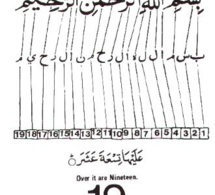 بِسْمِ اللَّهِ الرَّحْمَٰنِ الرَّحِيمِ
ب س م ا ل ل ه ا ل ر ح م ن ا ل ر ح ي م
19 18 17 16 15 14 13 12 11 10 9 8 7 6 5 4 3 2 1
عَلَيْهَا تِسْعَةَ عَشَرَ
Over it are Nineteen.
19